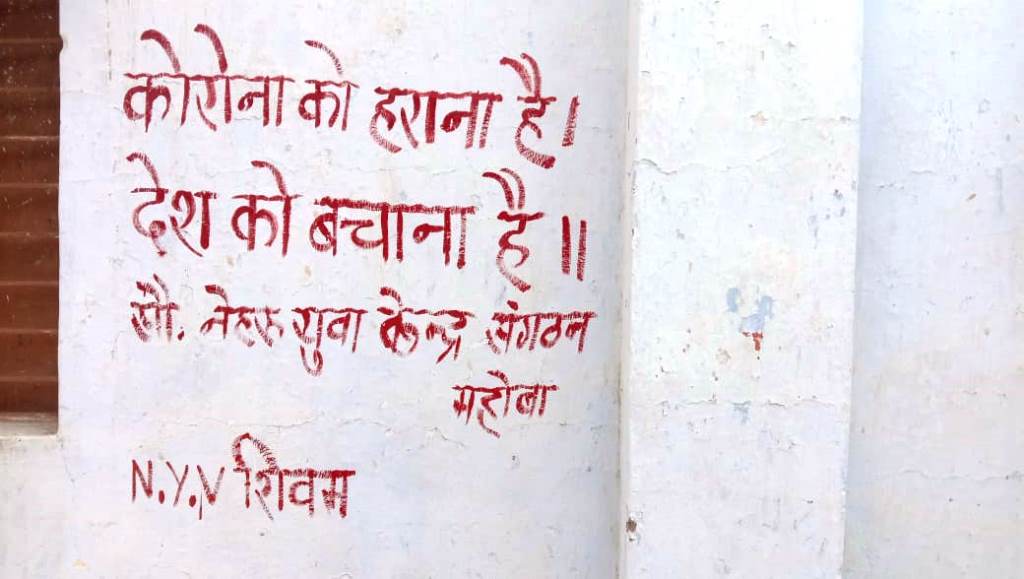 कोरोना को हराना है।
देश को बचाना है॥
सौ. नेहरू युवा केन्द्र संगठन
महोबा
N.Y.V शिवम